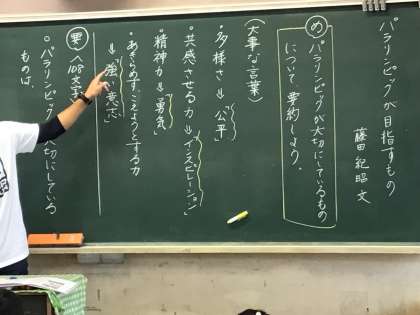 パラリンピックが目指すもの
藤田 紀昭 文
め パラリンピックが大切にしているもの
について、要約しよう。
(大事な言葉)
・多様さ⇒公平
・共感させる力⇒インスピレーション
・精神力⇒勇気
・あきらめずこえようとする力
⇒強い意志
要 〈108文字
・パラリンピック 大切にしている
ものは、